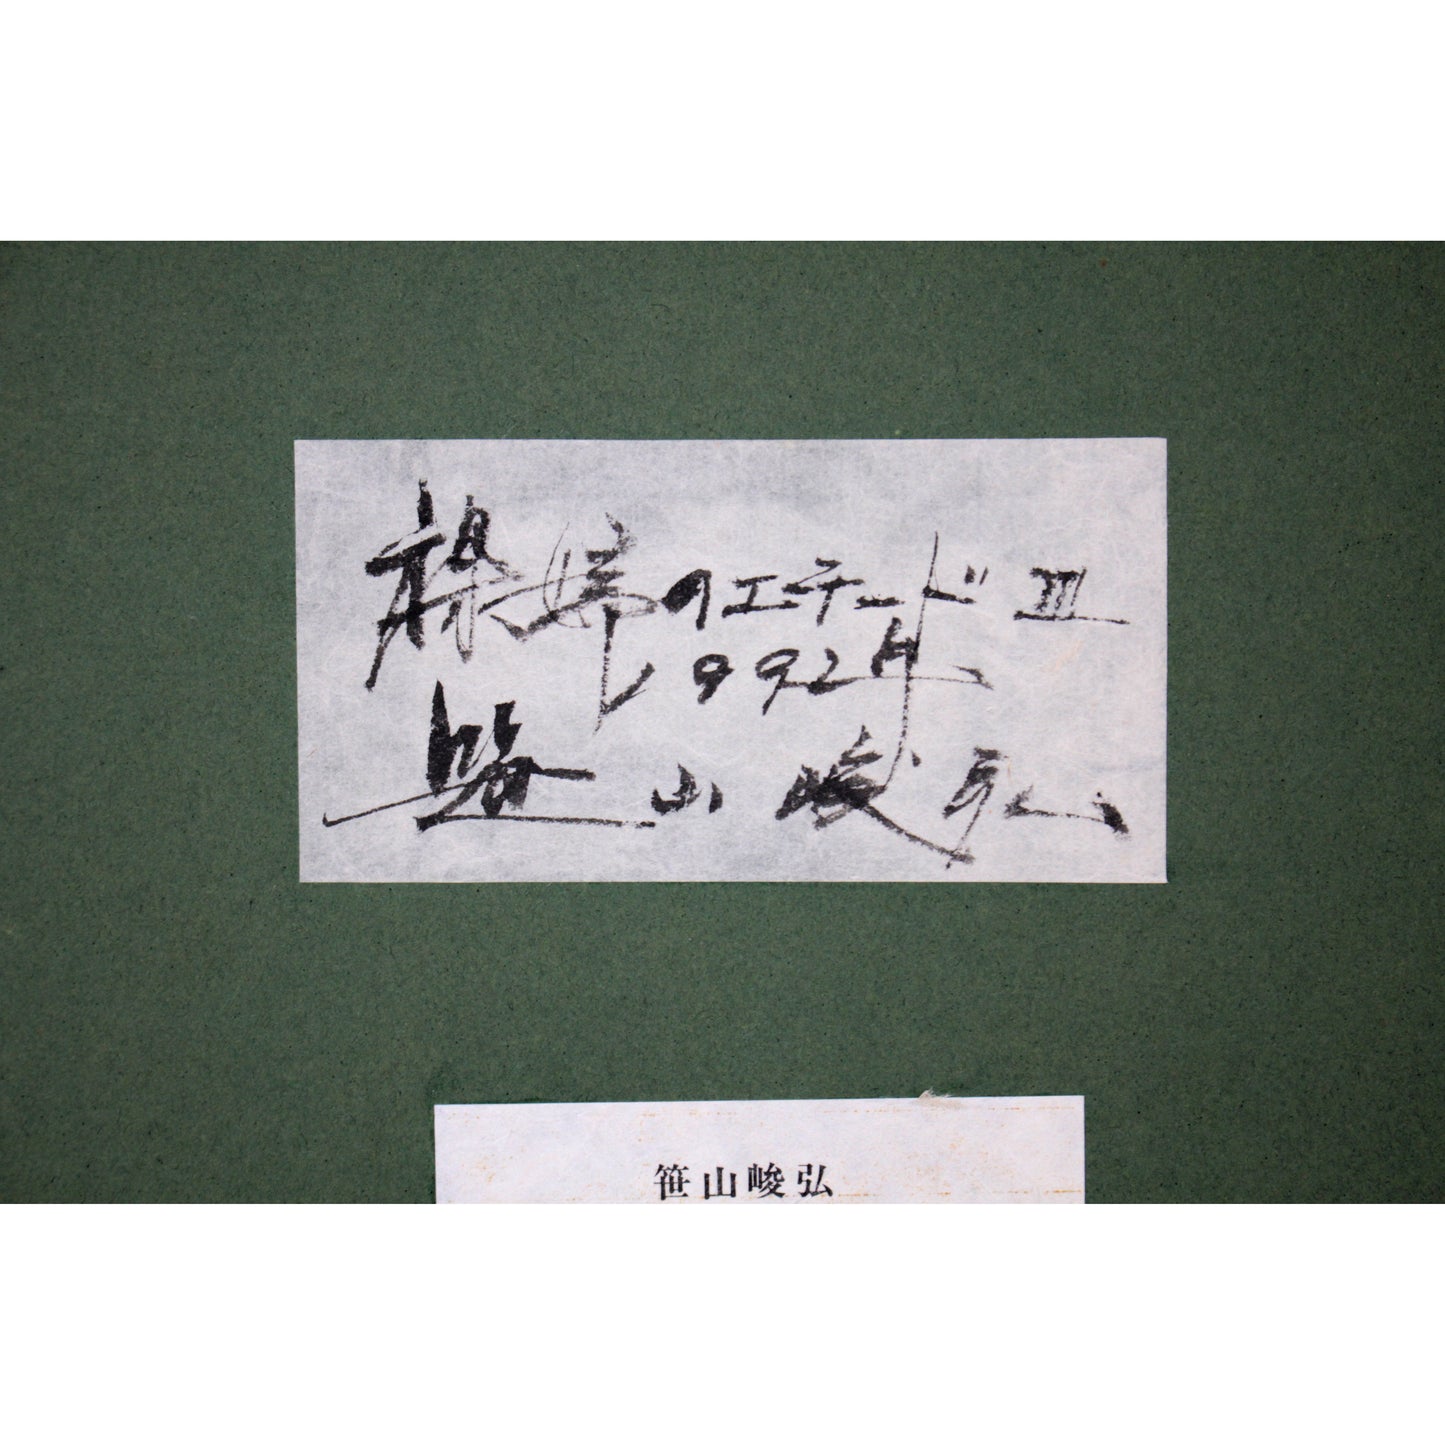 裸婦のエチュードⅢ
1992年
笹山峻弘
笹山峻弘